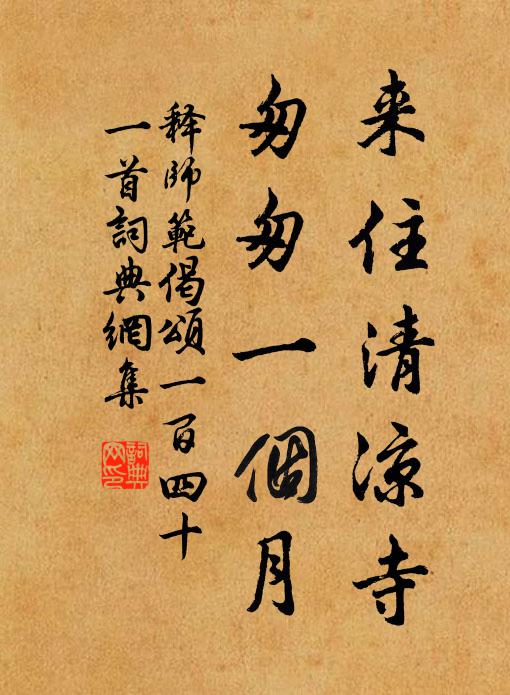 来住清凉寺
匆匆一個月
释師範偈頌一百四十
一首詞典網集
詞典网印